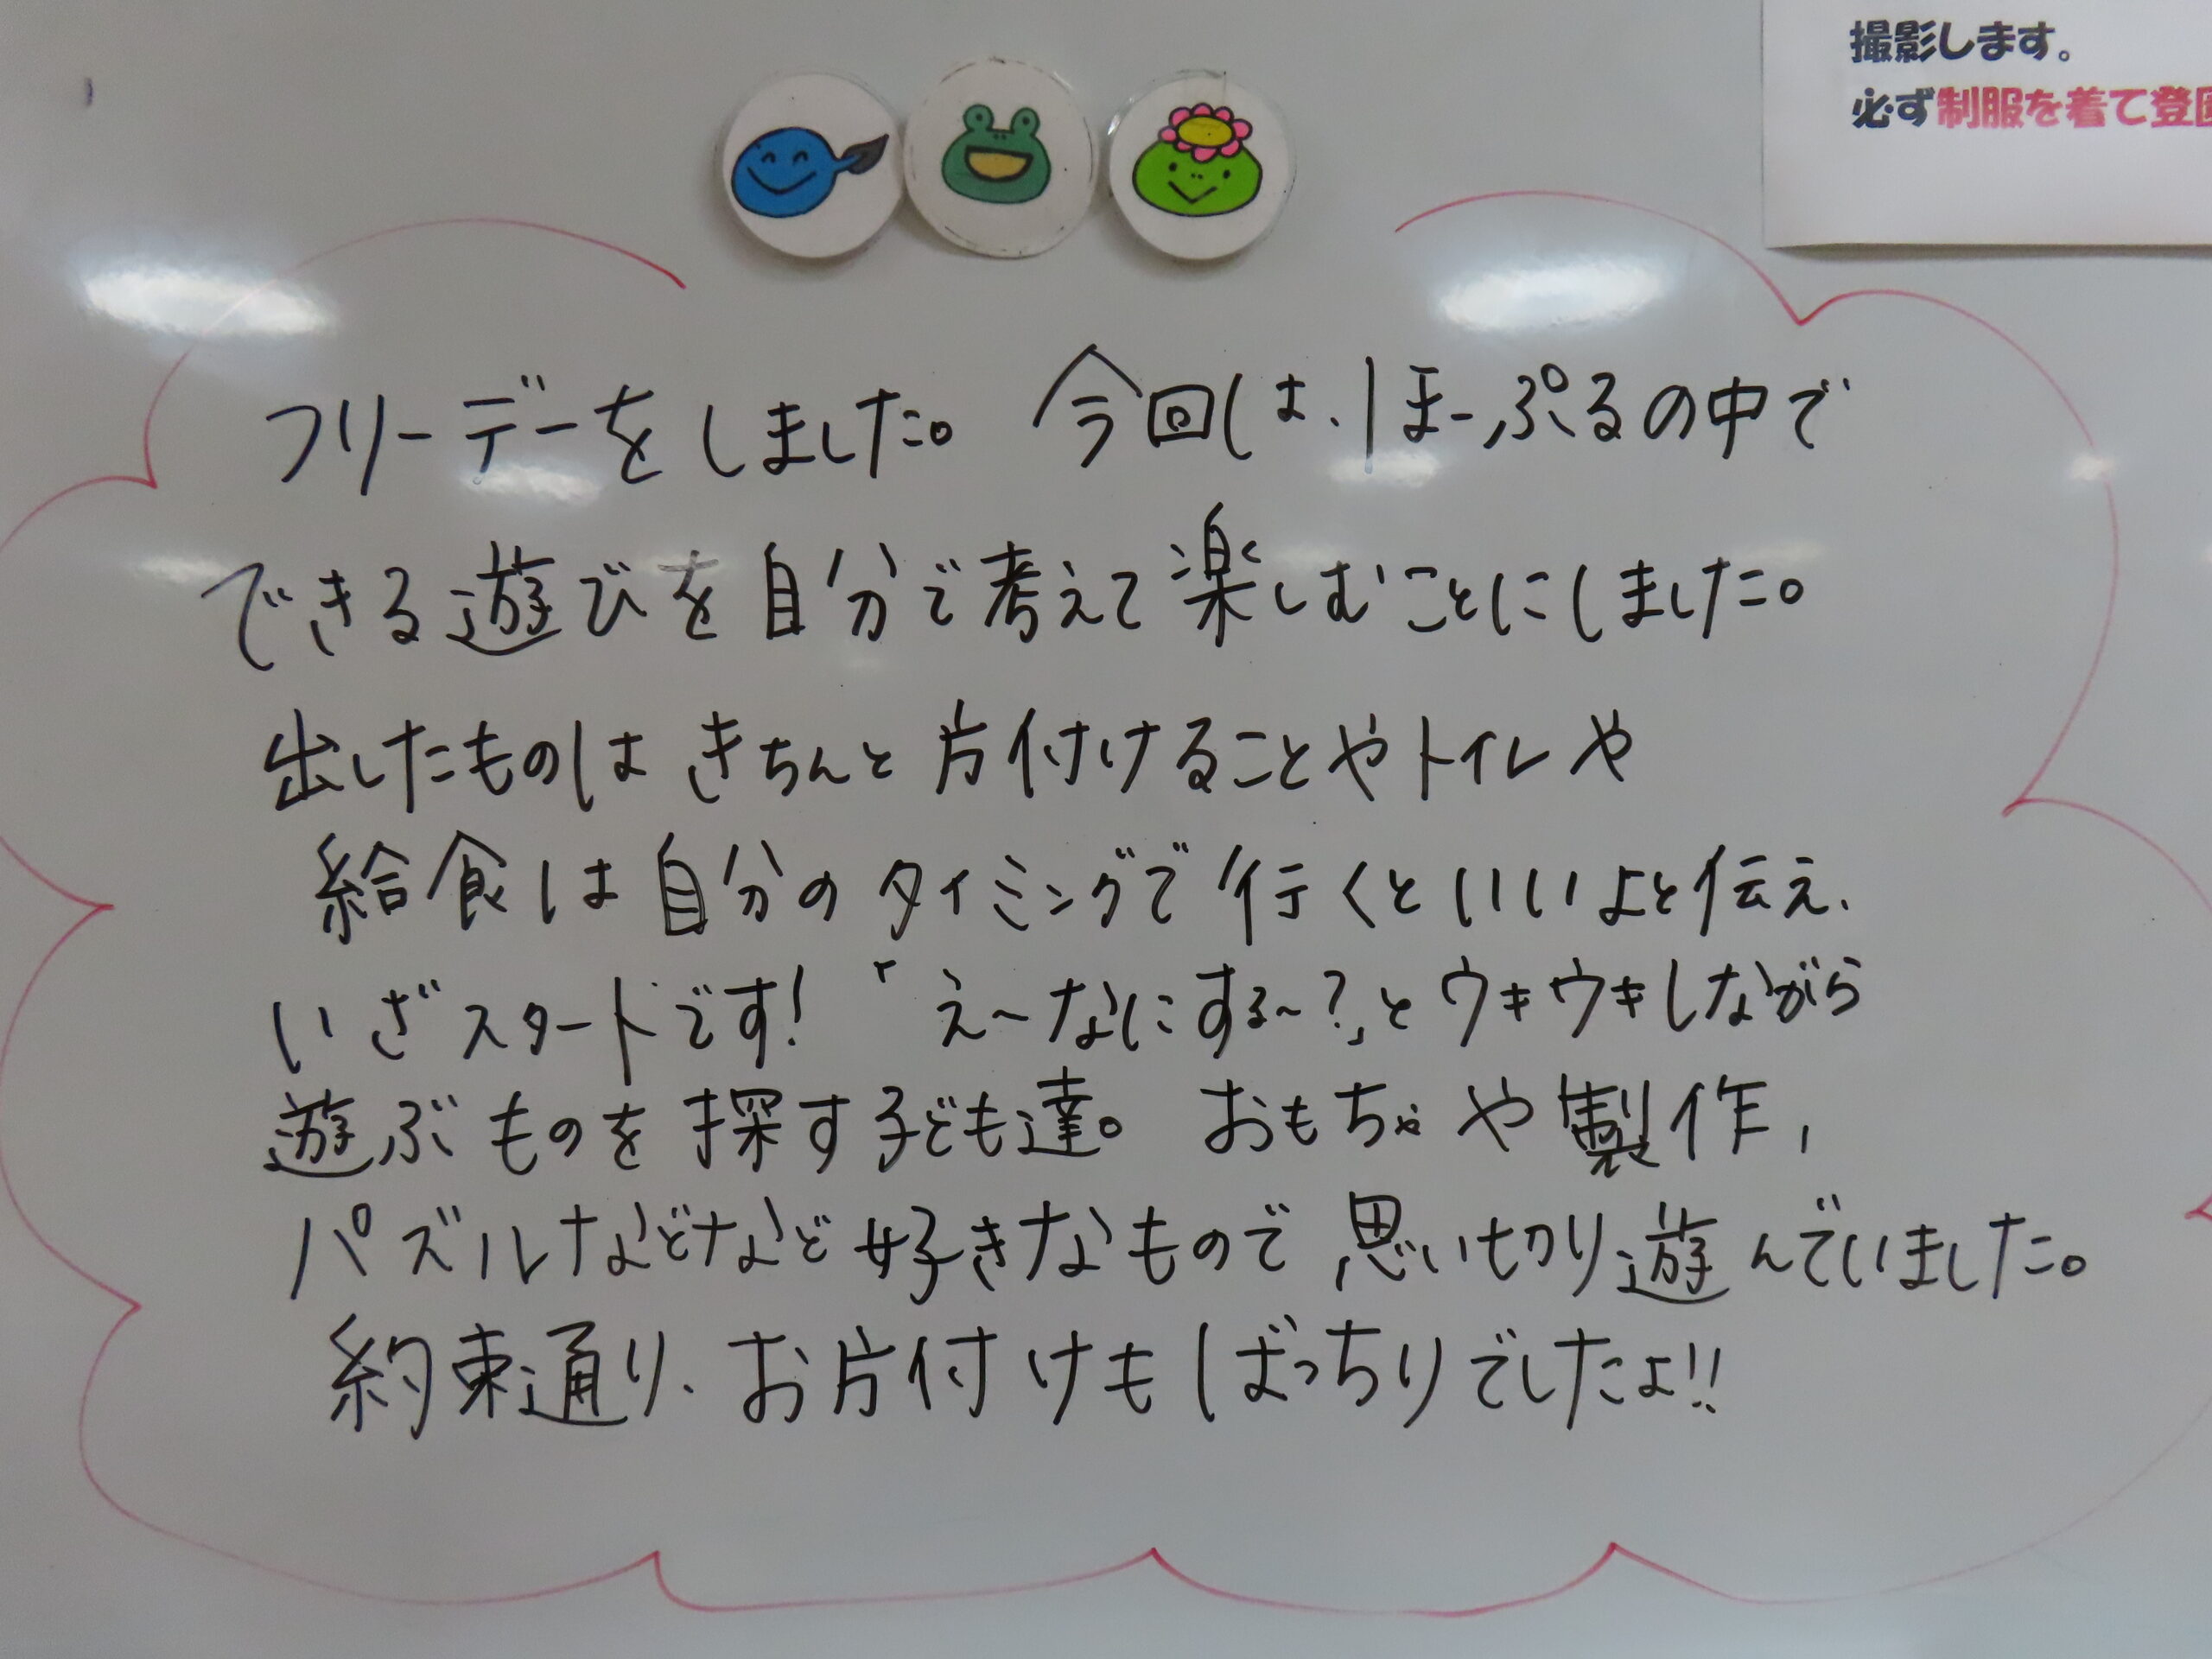 撮影します。
必ず制服を着て登園
フリーデーをしました。 今回は、ほーぷるの中で
できる遊びを自分で考えて楽しむことにしました。
出したものは きちんと片付けることやトイレや
給食は自分のタイミングで行くといいよと伝え、
いざスタートです! 「え〜なにする〜?」とウキウキしながら
遊ぶものを探す子ども達。 おもちゃや製作、
パズルなどなど好きなもので思い切り遊んでいました。
約束通り、お片付けもばっちりでしたよ!!